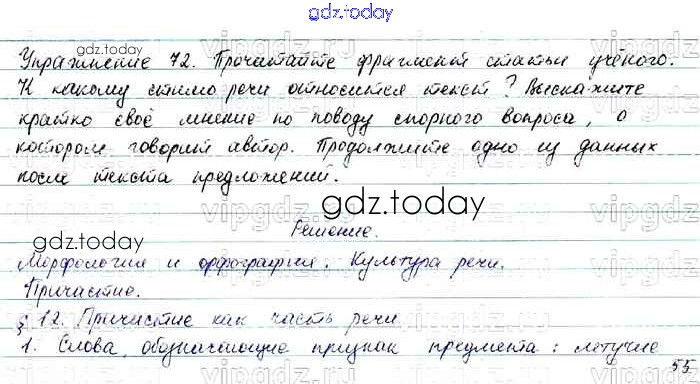 gdz.today
Упражнение 72. Прочитайте фрагмент статьи учёного.
gdz.today
К какому стилю речи относится текст? Выскажите
кратко своё мнение по поводу спорного вопроса, о
котором говорит автор. Продолжите одно из данных
после текста предложений.
gdz.today
Решение.
gdz.today
Морфология и орфография. Культура речи.
Причастие.
§ 12. Причастие как часть речи
1. Слова, обозначающие признак предмета: летучие
55